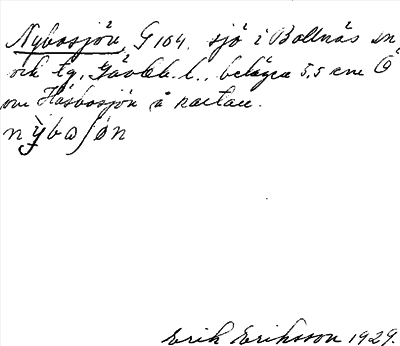 Nybosjön, G 104, sjö i Bollnäs sn
och tg, Gävleb. l., belägen 5,5 cm Ö
om Häsbosjön å kartan.
nỳbosjön
Erik Eriksson 1929.